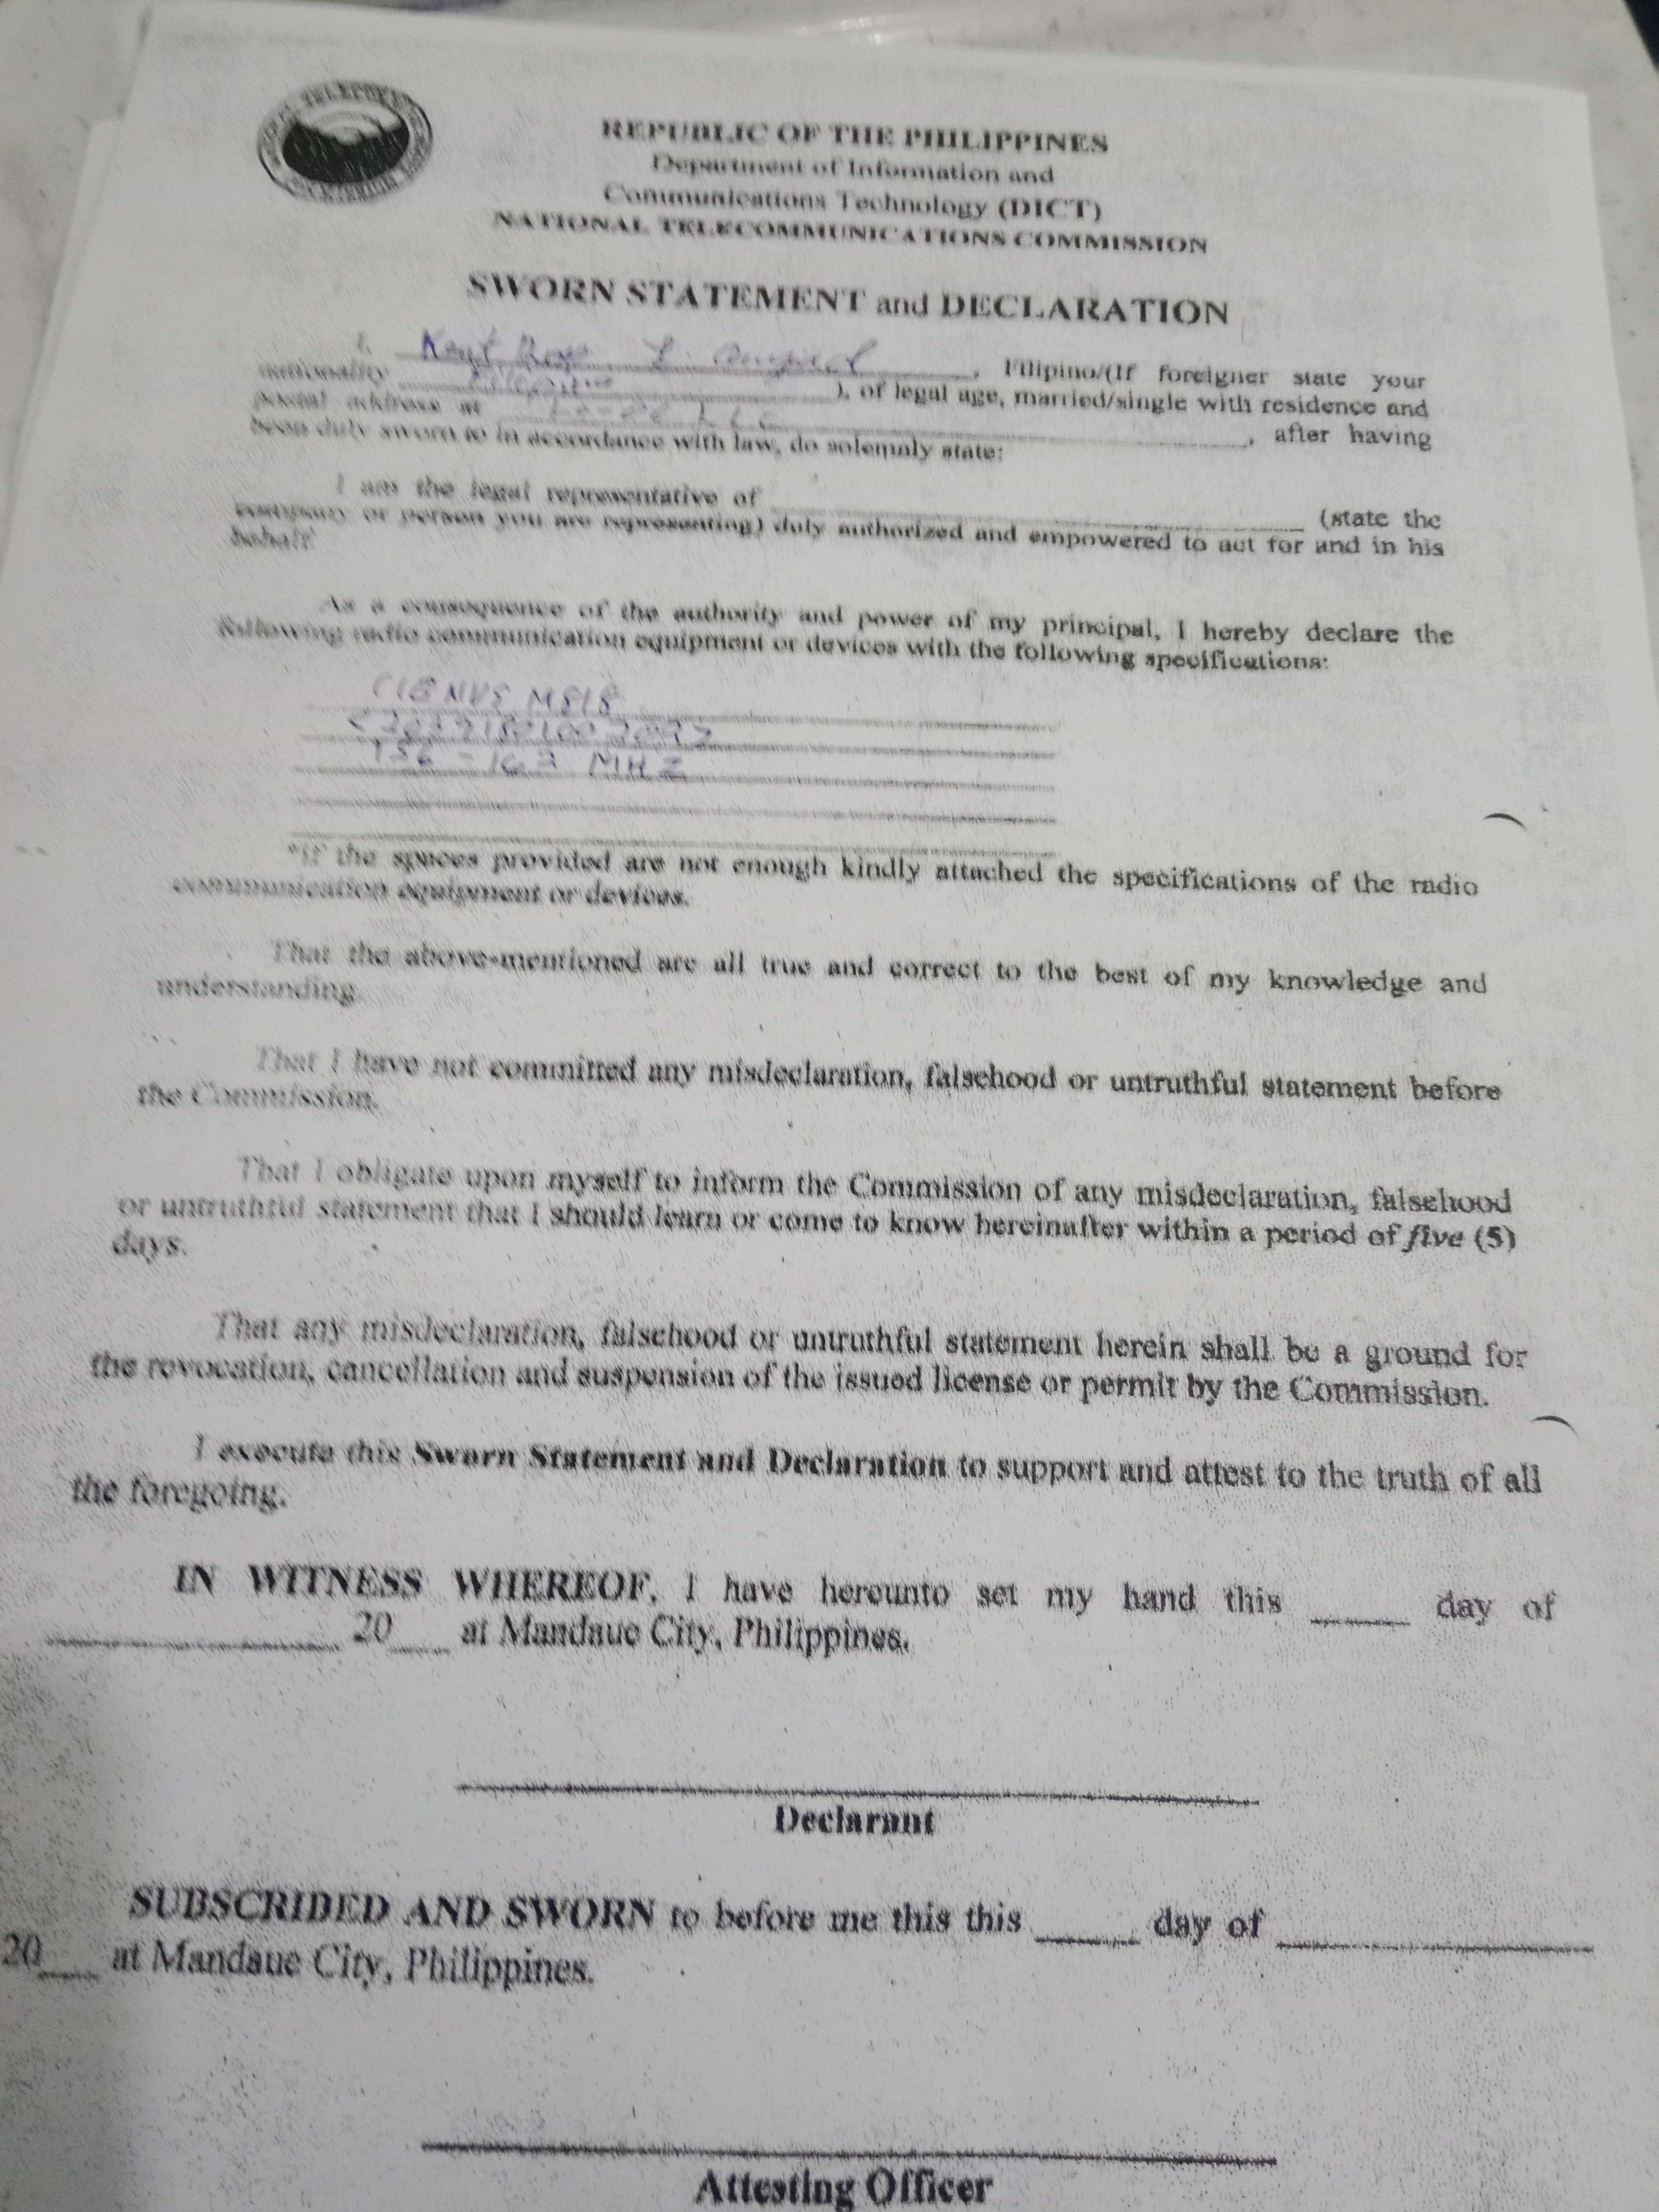 REPUBLIC OF THE PHILIPPINES
Department of Information and
Communications Technology (DICT)
NATIONAL TELECOMMUNICATIONS COMMISSION
SWORN STATEMENT and DECLARATION
I, , Filipino/(If foreigner state your
nationality ), of legal age, married/single with residence and
postal address at , after having
been duly sworn to in accordance with law, do solemnly state:
I am the legal representative of (state the
company or person you are representing) duly authorized and empowered to act for and in his
behalf
As a consequence of the authority and power of my principal, I hereby declare the
following radio communication equipment or devices with the following specifications:
M818
MHZ
*If the spaces provided are not enough kindly attached the specifications of the radio
communication equipment or devices.
That the above-mentioned are all true and correct to the best of my knowledge and
understanding.
That I have not committed any misdeclaration, falsehood or untruthful statement before
the Commission.
That I obligate upon myself to inform the Commission of any misdeclaration, falsehood
or untruthful statement that I should learn or come to know hereinafter within a period of five (5)
days.
That any misdeclaration, falsehood or untruthful statement herein shall be a ground for
the revocation, cancellation and suspension of the issued license or permit by the Commission.
I execute this Sworn Statement and Declaration to support and attest to the truth of all
the foregoing.
IN WITNESS WHEREOF, I have hereunto set my hand this ____ day of
____ 20__ at Mandaue City, Philippines.
Declarant
SUBSCRIBED AND SWORN to before me this this ____ day of ____
20__ at Mandaue City, Philippines.
Attesting Officer